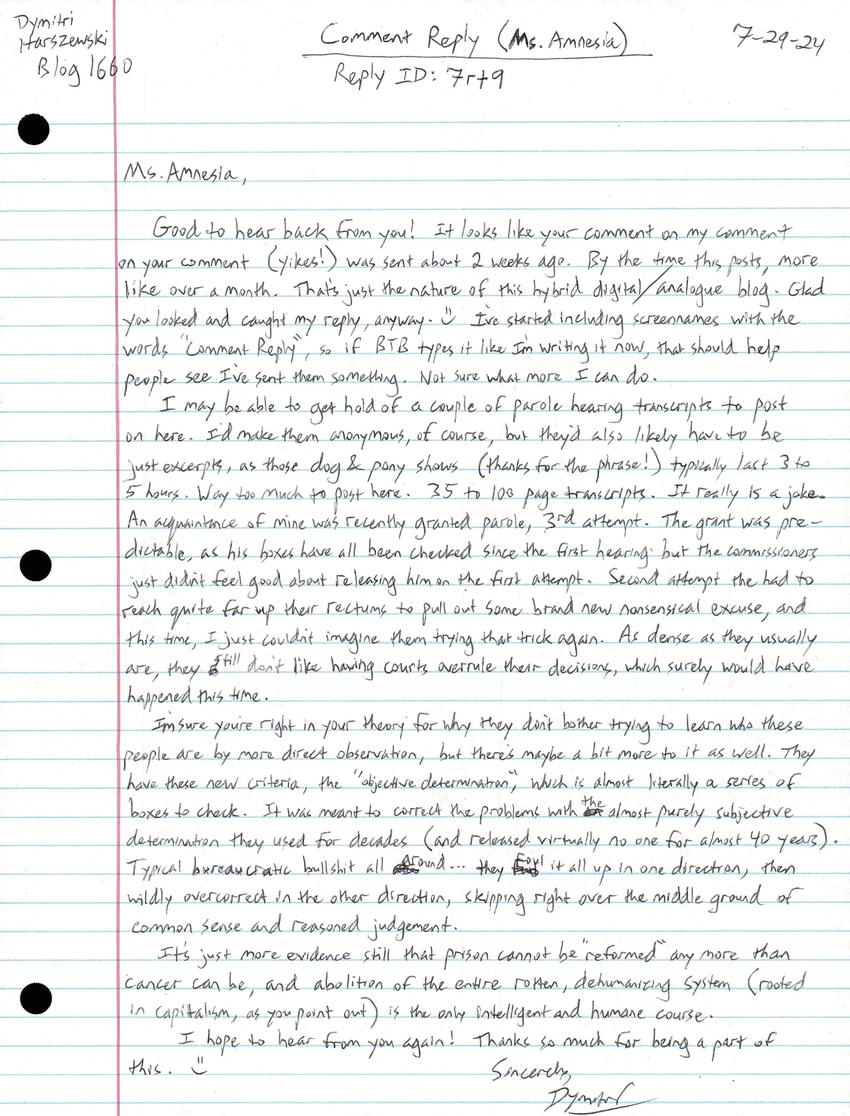 Dymitri
Haraszewski
Blog 1660
Comment Reply (Ms. Amnesia)
Reply ID: 7rt9
7-29-24
Ms. Amnesia,
Good to hear back from you! It looks like your comment on my comment
on your comment (yikes!) was sent about 2 weeks ago. By the time this posts, more
like over a month. That's just the nature of this hybrid digital/analogue blog. Glad
you looked and caught my reply, anyway. I've started including screennames with the
words "Comment Reply", so if BTB types it like I'm writing it now, that should help
people see I've sent them something. Not sure what more I can do.
I may be able to get hold of a couple of parole hearing transcripts to post
on here. I'd make them anonymous, of course, but they'd also likely have to be
just excerpts, as those dog & pony shows (thanks for the phrase!) typically last 3 to
5 hours. Way too much to post here. 35 to 100 page transcripts. It really is a joke.
An acquaintance of mine was recently granted parole, 3rd attempt. The grant was pre-
dictable, as his boxes have all been checked since the first hearing but the commissioners
just didn't feel good about releasing him on the first attempt. Second attempt the had to
reach quite far up their rectums to pull out some brand new nonsensical excuse, and
this time, I just couldn't imagine them trying that trick again. As dense as they usually
are, they still don't like having courts overrule their decisions, which surely would have
happened this time.
I'm sure you're right in your theory for why they don't bother trying to learn who these
people are by more direct observation, but there's maybe a bit more to it as well. They
have these new criteria, the "objective determination", which is almost literally a series of
boxes to check. It was meant to correct the problems with the almost purely subjective
determination they used for decades (and released virtually no one for almost 40 years).
Typical bureaucratic bullshit all around... they foul it all up in one direction, then
wildly overcorrect in the other direction, skipping right over the middle ground of
common sense and reasoned judgement.
It's just more evidence still that prison cannot be "reformed" any more than
cancer can be, and abolition of the entire rotten, dehumanizing system (rooted
in capitalism, as you point out) is the only intelligent and humane course.
I hope to hear from you again! Thanks so much for being a part of
this.
Sincerely,
Dymitri